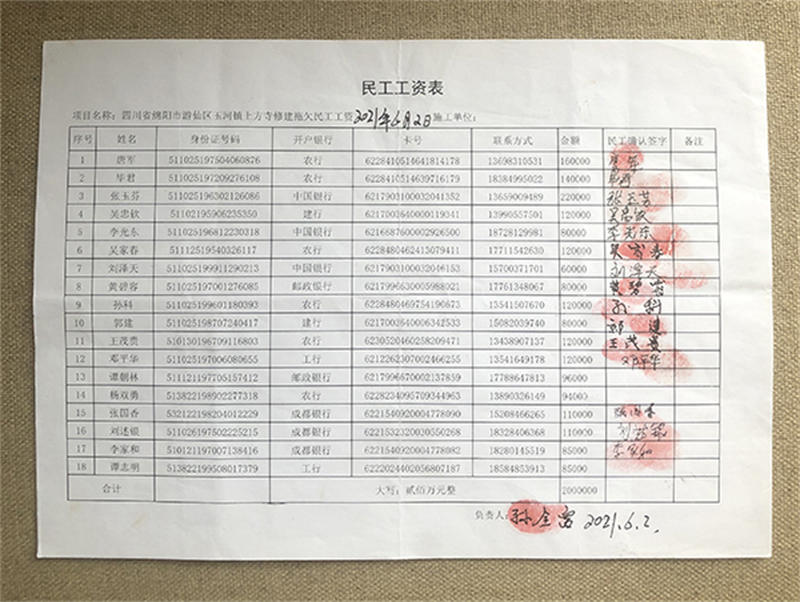 民工工资表
项目名称：四川省绵阳市游仙区玉河镇上方寺修建拖欠民工工资 2021年6月2日 施工单位：
序号 姓名 身份证号码 开户银行 卡号 联系方式 金额 民工确认签字 备注
1 唐军 511025197504060876 农行 6228410514641814178 13698310531 160000
2 毕君 511025197209276108 农行 6228410514639716179 18384995022 140000
3 张玉芬 511025196302126086 中国银行 6217903100032041352 13659009489 220000 张玉芬
4 吴忠钦 51102195906235350 建行 6217003640000119341 13990557501 120000 吴忠钦
5 李光东 511025196812230318 中国银行 6216687600002926500 18728129981 80000 李光东
6 吴家春 51112519540326117 农行 6228480462413079411 17711542630 120000 吴家春
7 刘泽天 511025199911290213 中国银行 6217903100032046153 15700371701 60000 刘泽天
8 黄碧容 511025197001276085 邮政银行 6217996630005988021 17761348067 80000 黄碧容
9 孙科 511025199601180393 农行 6228480469754190673 13541507670 120000 孙科
10 郭建 511025198707240417 建行 6217003640006342533 15082039740 80000 郭建
11 王茂贵 510130196709116803 农行 6230520460258209471 13438907137 120000 王茂贵
12 邓平华 511025197006080655 工行 6212262307002466255 13541649178 120000 邓平华
13 谭朝林 511121197705157412 邮政银行 6217996670002137859 17788647813 96000
14 杨双勇 513822198902277318 农行 6228234095709344963 13890326149 94000
15 张国香 532122198204012229 成都银行 6221540920004778090 15208466265 110000 张国香
16 刘述银 511026197502225215 成都银行 6221532320030550268 18328406368 110000 刘述银
17 李家和 510121197007138416 成都银行 6221540920004778082 18280145519 85000 李家和
18 谭志明 513822199508017379 工行 6222024402056807187 18584853913 85000
合计 大写：贰佰万元整 2000000
负责人： 孙全富 2021.6.2.